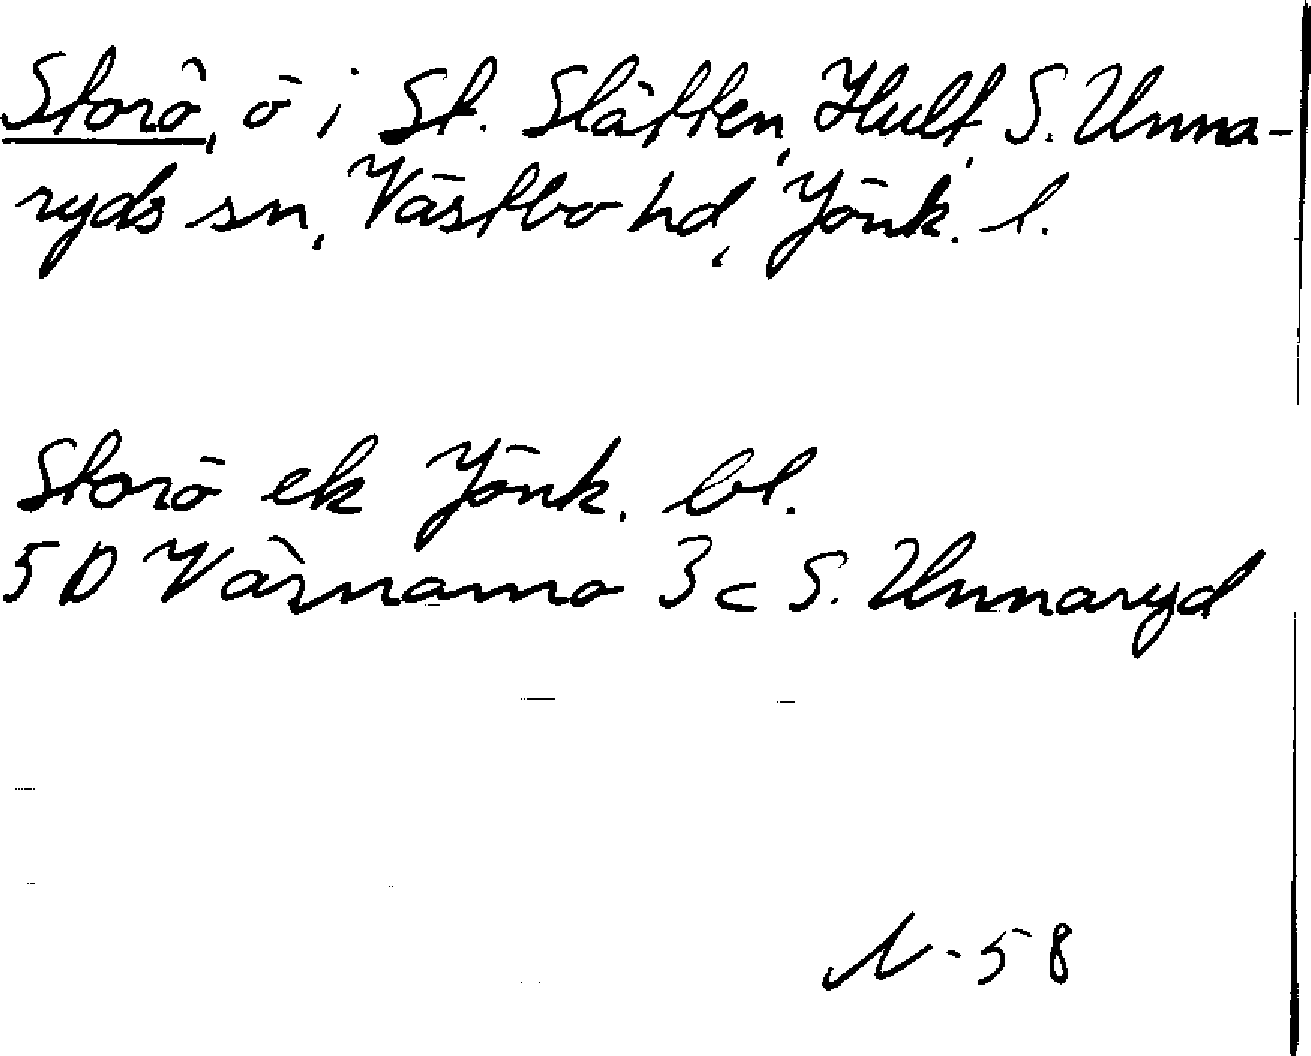 Storö, ö i St. Slätten, Hult, S. Unna-
ryds sn, Västbo hd, Jönk. l.
Storö ek Jönk. bl.
5 D Värnamo 3 c S. Unnaryd
N - 58